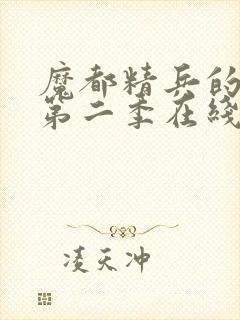 魔都精兵的
第二季在线
凌天冲